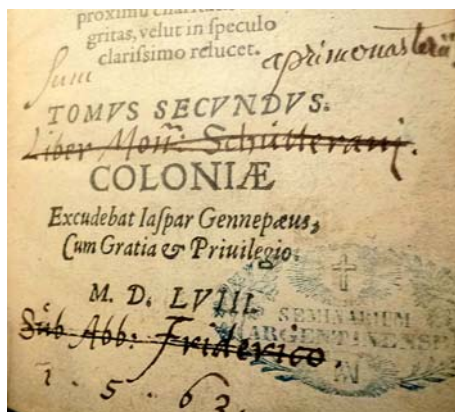 proximu
gritas, velut in ſpeculo
clariſsimo relucet.
Sum primonasterii
TOMVS SECVNDVS.
Liber Mon: Schutterani.
COLONIÆ
Excudebat Iaſpar Gennepæus,
Cum Gratia & Priuilegio.
M. D. LVIII.
SEMINARIUM
ARGENTINENSE
Sub Abb: Friderico.
1 . 5 . 6 3